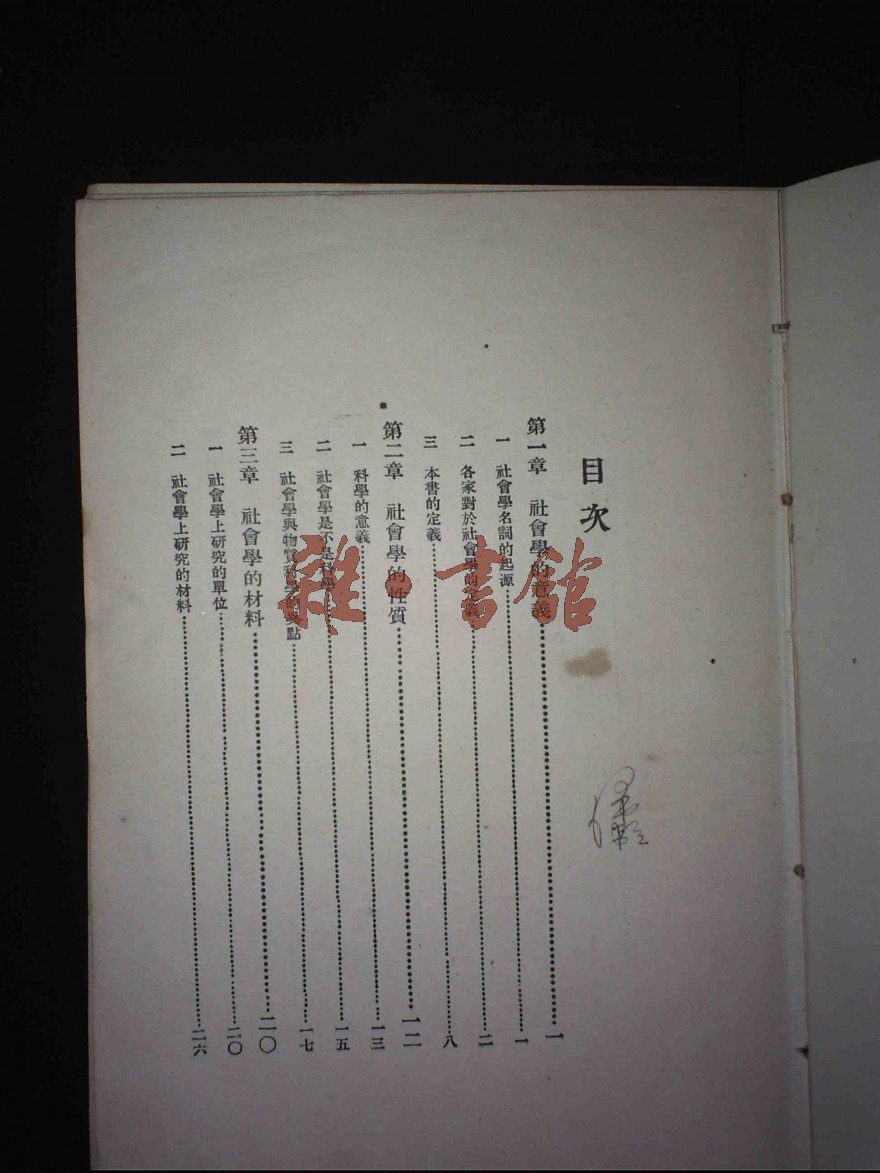 目次
第一章 社會學的意義……一
一 社會學名詞的起源……一
二 各家對於社會學的定義……二
三 本書的定義……八
第二章 社會學的性質……一二
一 科學的意義……一三
二 社會學是不是科學……一五
三 社會學與物質科學的異點……一七
第三章 社會學的材料……二〇
一 社會學上研究的單位……二〇
二 社會學上研究的材料……二六
雜·書館